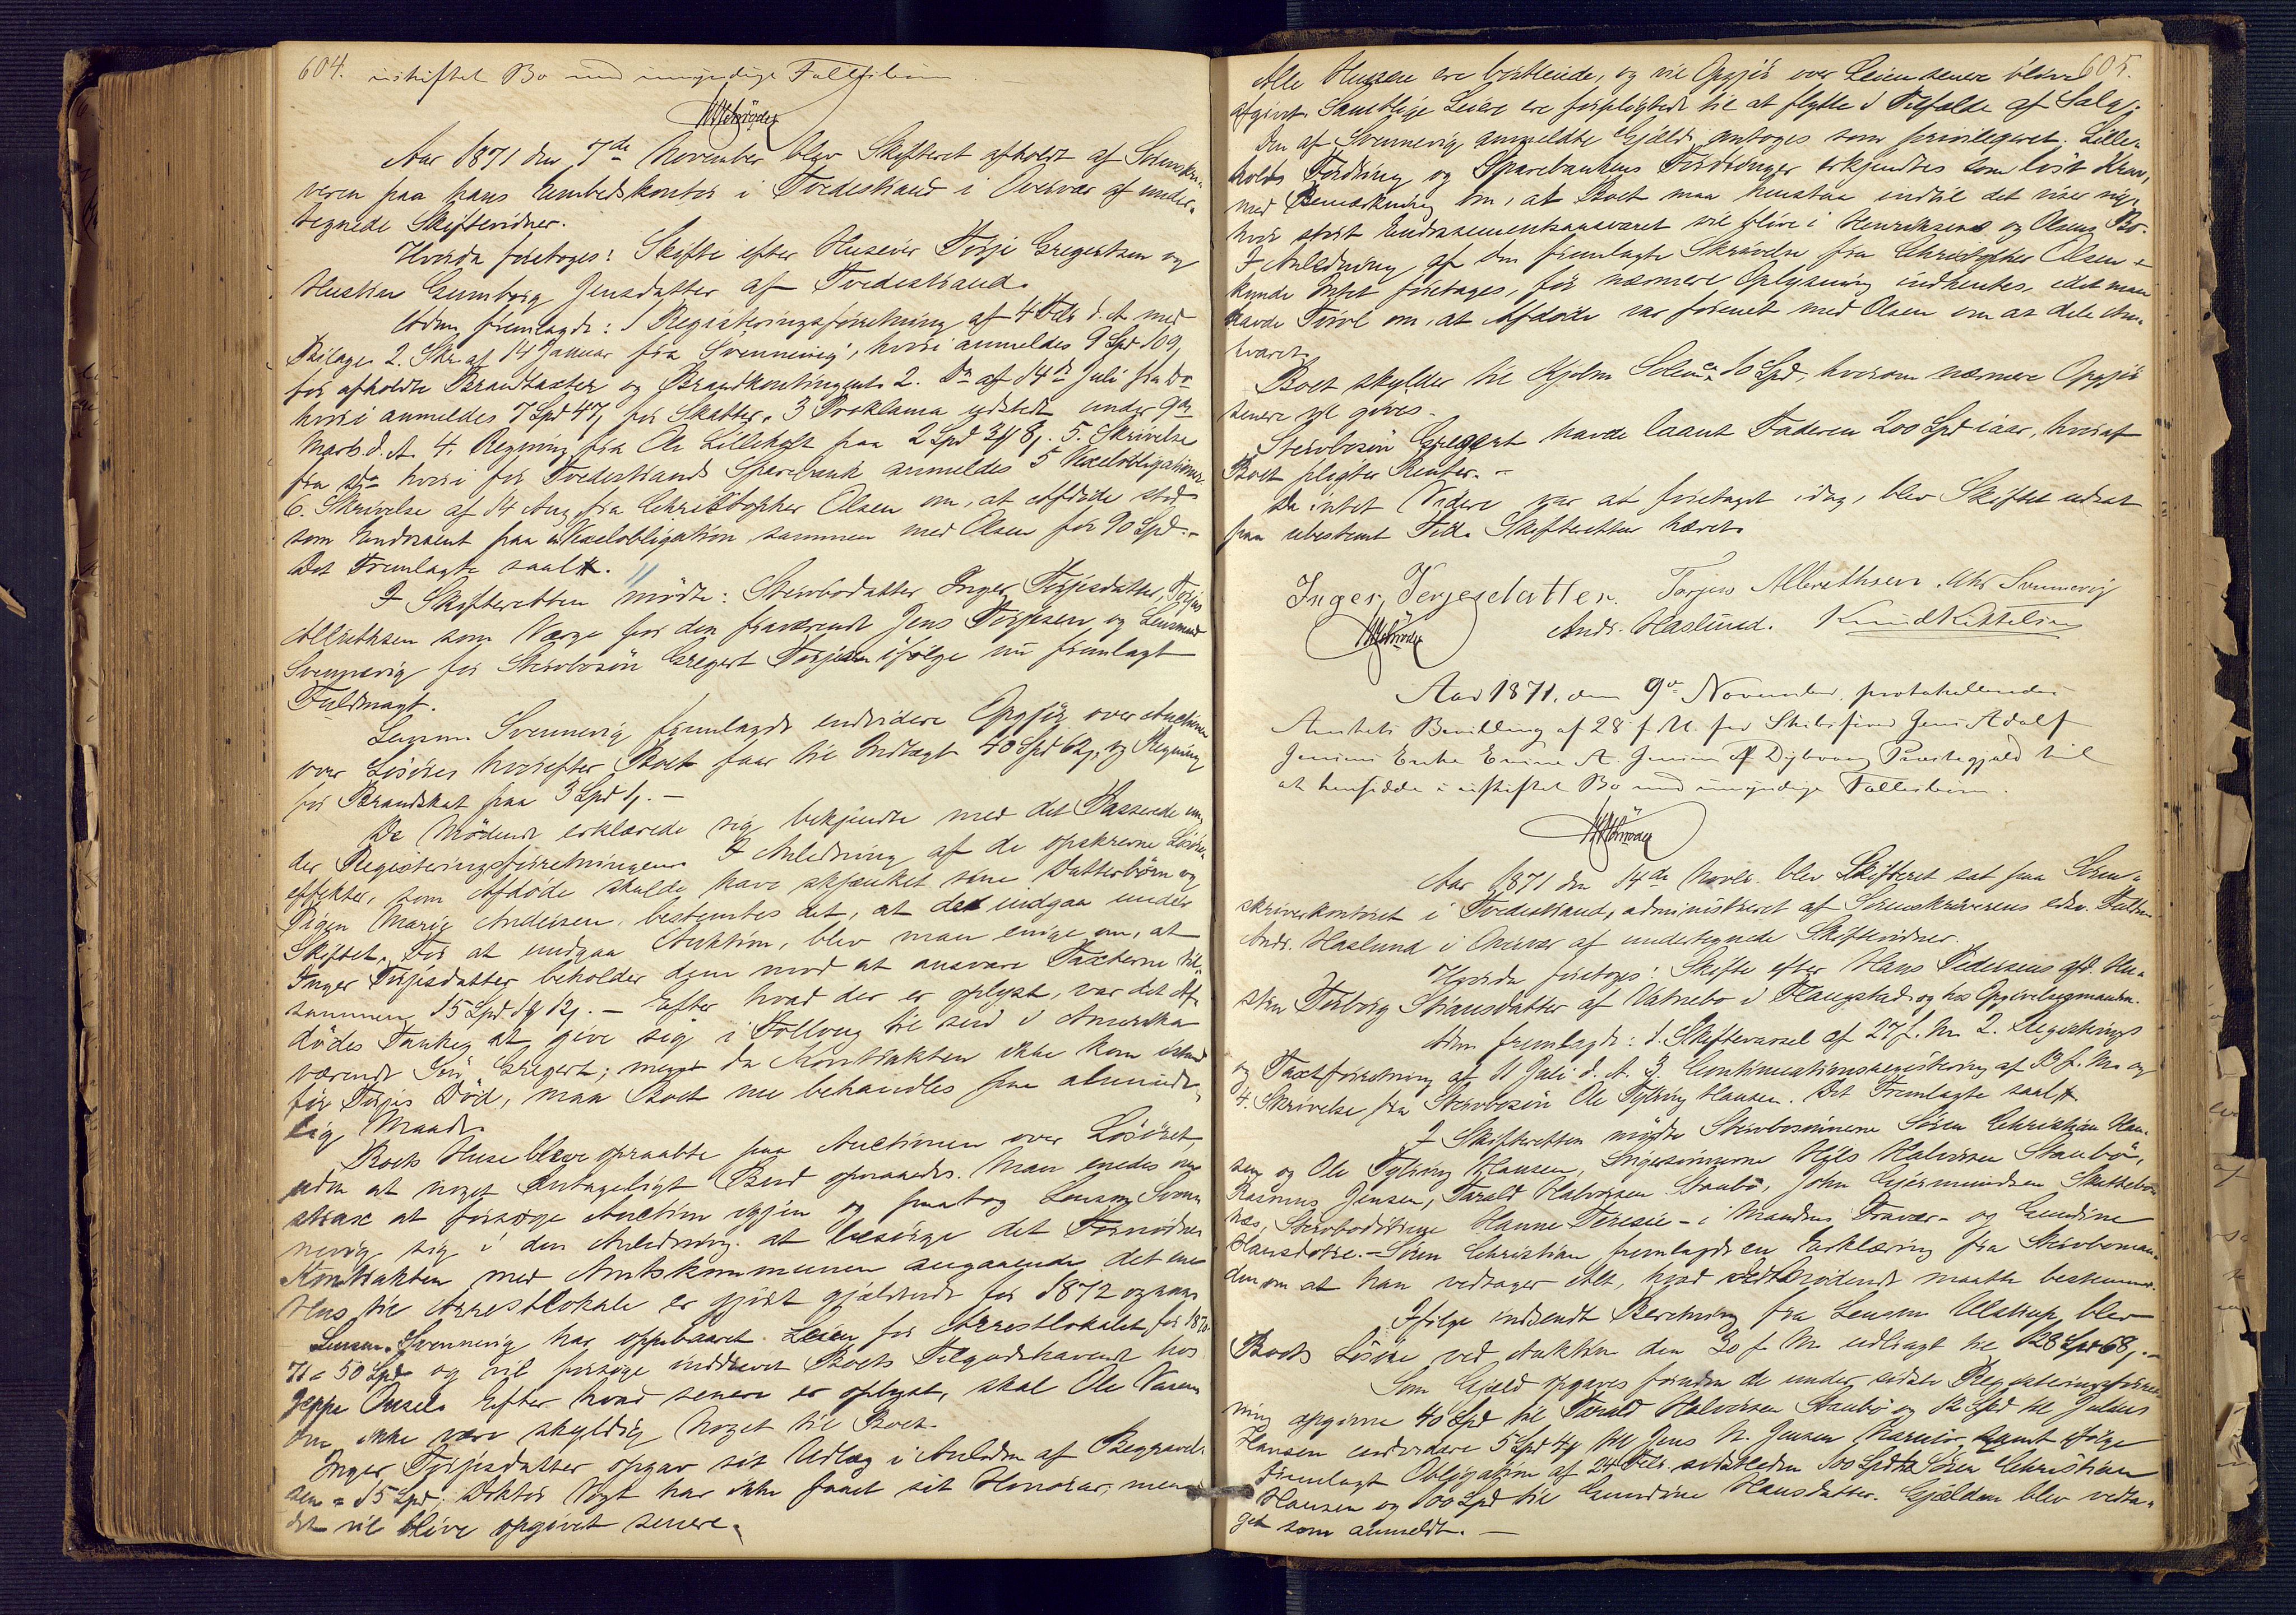 604. uskiftet Bo med umyndige Fællesbørn
Aar 1871 den 7de November blev Skifteret afholdt af Sorenskri-
veren paa hans Embedskontor i Tvedestrand i Overvær af under-
tegnede Skiftevidner.
Hvorda foretoges: Skifte efter Huseier Terje Gregertsen og
Hustru Gunborg Jensdatter af Tvedestrand.
Adm. fremlagde: 1 Registreringsforretning af 4 Febr d. A. med
Bilage. 2. Skr. af 14 Januar fra Svennevig, hvori anmeldes 9 Spd 109,
for afholdte Brandtaxter og Brandkontingent. 2. Do af 14de Juli fra Do
hvori anmeldes 7 Spd 47, for Skatter. 3 Proklama udstedt under 9de
Marts d. A. 4. Regning fra Ole Lilleholt paa 2 Spd 3 8. 5. Skrivelse
fra Do hvori for Tvedestrands Sparebank anmeldes 5 Vexelobligationer
6. Skrivelse af 14 Aug. fra Christopher Olsen om, at Afdøde stod
som Endossent paa en Vexelobligation sammen med Olsen for 90 Spd.-
Det Fremlagte saal.
I Skifteretten mødte: Stervbodatter Inger Terjesdatter, Torjus
Albrethsen som Værge for den fraværende Jens Terjesen og Lensmand
Svennevig for Stervbosøn Gregert Terjesen ifølge nu fremlagt
Fuldmagt.
Lensm. Svennevig fremlagde endvidere Opgjør over Auctionen
over Løsøret hvorefter Boet faar til Indtægt 40 Spd 62, og Regning
for Brandskat paa 3 Spd 1.-
De Mødende erklærede sig bekjendte med det Passerede un-
der Registreringsforretningen. I Anledning af de opskrevne Løsøre-
effekter, som Afdøde skulde have skjænket sine Datterbørn og
Pigen Marie Andersen, bestemtes det, at det indgaa under
Skiftet. For at undgaa Auktion, blev man enige om, at
Inger Terjesdatter beholder dem mod at ansvare Taxterne til-
sammen 15 Spd. 1 12.- Efter hvad der er oplyst, var det Af-
dødes Tanke, at give sig i Follaug til sin i Amerika
værende Søn, Gregert; men da Kontrakten ikke kom istand
før Terjes Død, maa Boet nu behandles paa alminde-
lig Maade.
Boets Huse bleve opraabte paa Auctionen over Løsøret
uden at noget Antageligt Bud opnaaedes. Man enedes om
strax at forsøge Auction igjen og paatog Lensm. Sven-
nevig sig i den Anledning at besørge det Fornødne.
Kontrakten med Amtskommunen angaaende det ene
Hus til Arrestlokale er gjort gjældende for 1872 ogsaa.
Lensm. Svennevig har oppebaaret Leien for Arrestlokalet for 1870-
71 = 50 Spd og vil forsøge inddrevet Boets Tilgodehavende hos
Jeppe Efter hvad senere er oplyst, skal Ole
ikke være skyldig Noget til Boet.
Inger Terjesdatter opgav sit Udlæg i Anledn af Begravel-
sen = 15 Spd; Doktor Vogt har ikke faaet sit Honorar, men
det vil blive opgivet senere.
605.
Alle Husene ere bortleiede, og vil Opgjør over Leien senere blive
afgivet. Samtlige Leiere ere forpligtede til at flytte i Tilfælde af Salg.
Den af Svennevig anmeldte Gjæld antoges som privilegeret. Lille-
holts Fordring og Sparebankens Fordringer erkjendtes som løst Krav,
med Bemærkning om, at Boet maa henstaa indtil det viser sig
hvor stort Endossementsansvaret vil blive i Henriksens og Olsens Bo.
I Anledning af den fremlagte Skrivelse fra Christopher Olsen
kunde Intet foretages, før nærmere Oplysning indhentes, idet man
havde Tvivl om, at Afdøde var forenet med Olsen om at dele An-
svaret.
Boet skylder til Kjøbm 10 Spd, hvorom nærmere Opgjør
senere vil gives.
Stervbosøn Gregert havde laant Faderen 200 Spd iaar, hvoraf
Boet pligter Renter.-
Da intet Videre var at foretaget idag, blev Skiftet udsat
paa ubestemt Tid. Skifteretten hævet.
Inger, Terjesdatter. Torjus Albrethsen. Chr Svennevig
Andr. Haslund. Knud Kittelsen
Aar 1871, den 9de November, protokolleredes
Amtets Bevilling af 28 f. M. for Skibsfører Jens Adolf
Jensens Enke A. Jensen af Dybvaag Præstegjeld til
at hensidde i uskiftet Bo med umyndige Fællesbørn.
Aar 1871 den 14de Novbr. blev Skifteret sat paa Soren-
skriverkontoret i Tvedestrand, administreret af Sorenskriverens edsv. Fuldm.
Andr. Haslund i Overvær af undertegnede Skiftevidner.
Hvorda foretoges: Skifte efter Hans Pedersens afd. Hu-
stru Torborg af Vatnebo i Flangstad og hos Opgivelsesmanden.
Adm fremlagde: 1. Skiftevarsel af 27 f. M. 2. Registrerings
og Taxtforretning af 11 Juli d. A. 3. Continuationsregistrering af f. M. og
4. Skrivelse fra Stervbosøn Ole Hansen. Det Fremlagte saal.
I Skifteretten mødte Stervbosønnerne Søren Christian Han-
sen og Ole Hansen, Svigersønnerne Nils Halvorsen Staubø,
Rasmus Jensen, Tarald Halvorsen Staubø, John Gjermundsen
næs, Stervbodøtrene Hanne Teresie - i Mandens Fravær - og Gundine
Hansdøtre.- Søren Christian fremlagde en Erklæring fra Stervboman-
den om at han vedtager Alt, hvad de Mødende maatte bestemme.
Ifølge indsendt Beretning fra Lensm Ulstrup blev
Boets Løsøre ved Auktion den 30 f. M. udbragt til 128 Spd 68,.-
Som Gjæld opgaves foruden de under sidste Registreringsforret-
ning opgivne 40 Spd til Tarald Halvorsen Staubø og 12 Spd til Julius
Hansen endvidere 5 Spd 4 til Jens N. Jensen samt ifølge
fremlagt Obligation af 24 Febr. 100 Spd til Søren Christian
Hansen og 100 Spd til Gundine Hansdatter. Gjælden blev vedta-
get som anmeldt.-